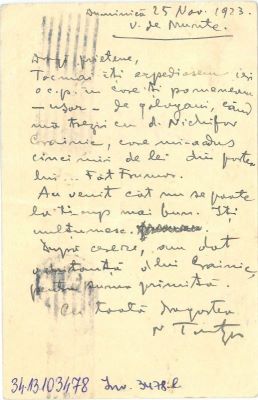 Duminică 25 Nov. 1923.
V. de Munte.
Dragă prietene,
Tocmai îți expediasem ieri
o c.p. în care îți pomeneam
— ușor — de gologani, când
mă trezii cu d. Nichifor
Crainic, care mi-aduse
cinci mii de lei din partea
lui... Făt Frumos.
Au venit cât nu se poate
la timp mai bun. Îți
mulțumesc.
După cerere, am dat
chitanță dlui Crainic,
pentru suma primită.
Cu toată dragostea
N Tonitza
34.13103478 Inv. 3478 l